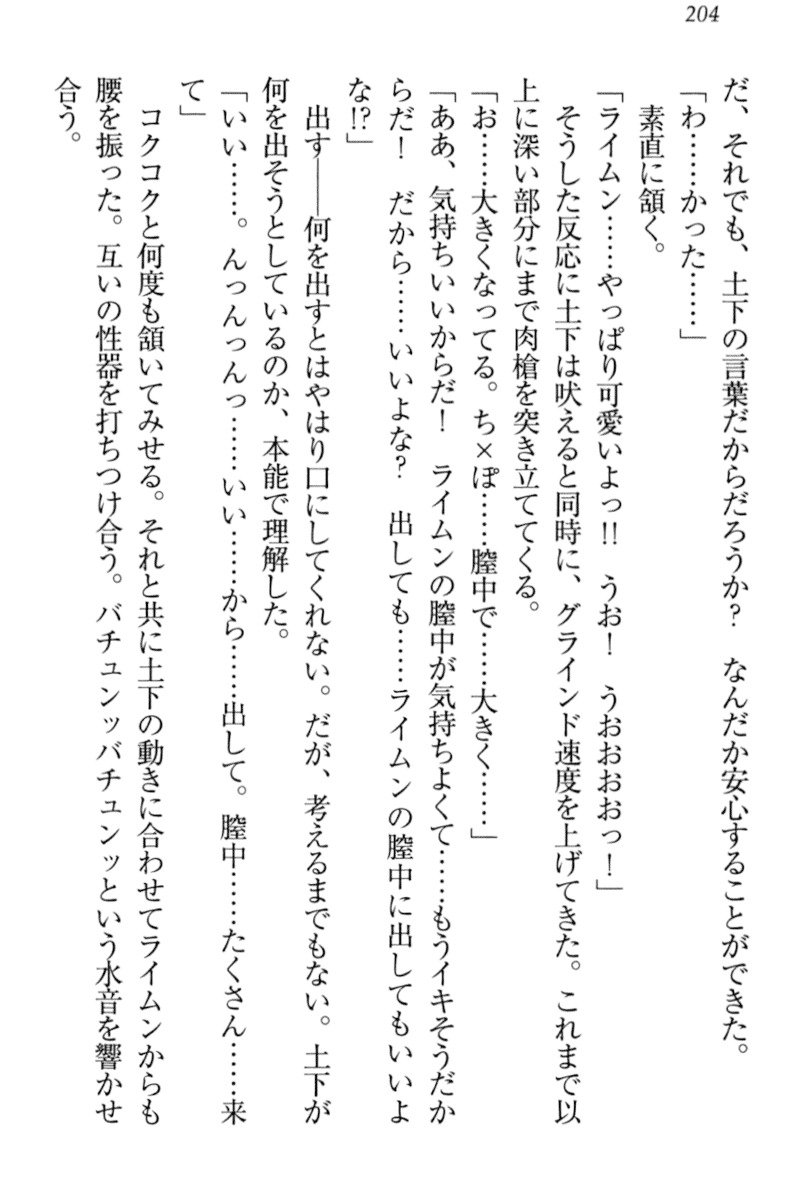 204
だ、それでも、土下の言葉だからだろうか？　なんだか安心することができた。
「わ……かった……」
素直に頷く。
「ライムン……やっぱり可愛いよっ!!　うお！　うおおおおっ！」
そうした反応に土下は吠えると同時に、グラインド速度を上げてきた。これまで以
上に深い部分にまで肉槍を突き立ててくる。
「お……大きくなってる。ち×ぽ……膣中で……大きく……」
「ああ、気持ちいいからだ！　ライムンの膣中が気持ちよくて……もうイキそうだか
らだ！　だから……いいよな？　出しても……ライムンの膣中に出してもいいよ
な!?」
出す――何を出すとはやはり口にしてくれない。だが、考えるまでもない。土下が
何を出そうとしているのか、本能で理解した。
「いい……。んっんっんっ……いい……から……出して。膣中……たくさん……来
て」
コクコクと何度も頷いてみせる。それと共に土下の動きに合わせてライムンからも
腰を振った。互いの性器を打ちつけ合う。バチュンッバチュンッという水音を響かせ
合う。